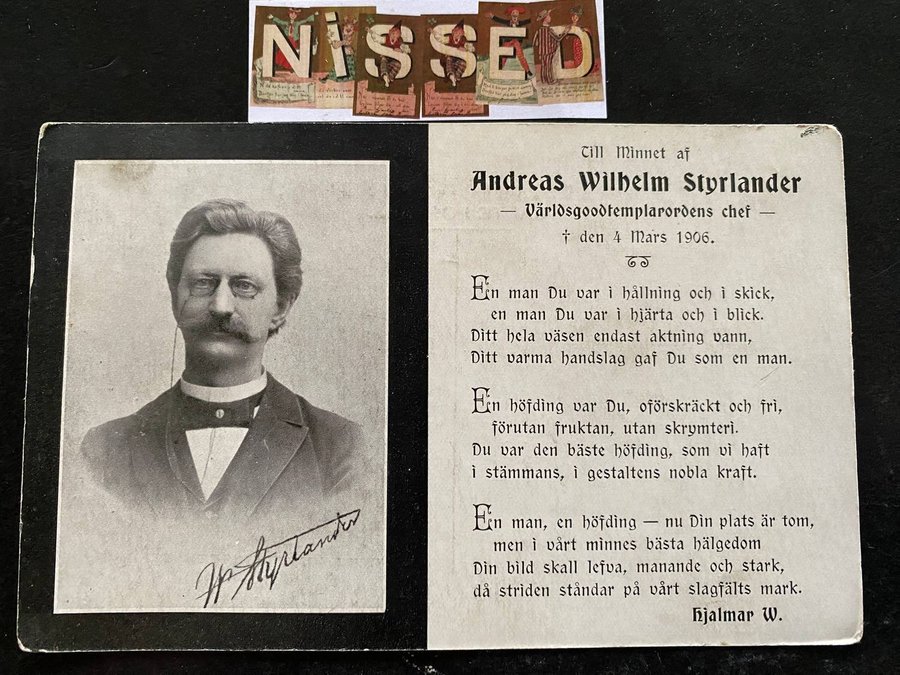 NiSSED
Till Minnet af
Andreas Wilhelm Styrlander
— Världsgoodtemplarordens chef —
† den 4 Mars 1906.
En man Du var i hållning och i skick,
en man Du var i hjärta och i blick.
Ditt hela väsen endast aktning vann,
Ditt varma handslag gaf Du som en man.
En höfding var Du, oförskräckt och fri,
förutan fruktan, utan skrymteri.
Du var den bäste höfding, som vi haft
i stämmans, i gestaltens nobla kraft.
En man, en höfding — nu Din plats är tom,
men i vårt minnes bästa hälgedom
Din bild skall lefva, manande och stark,
då striden ståndar på vårt slagfälts mark.
Hjalmar W.
W Styrlander